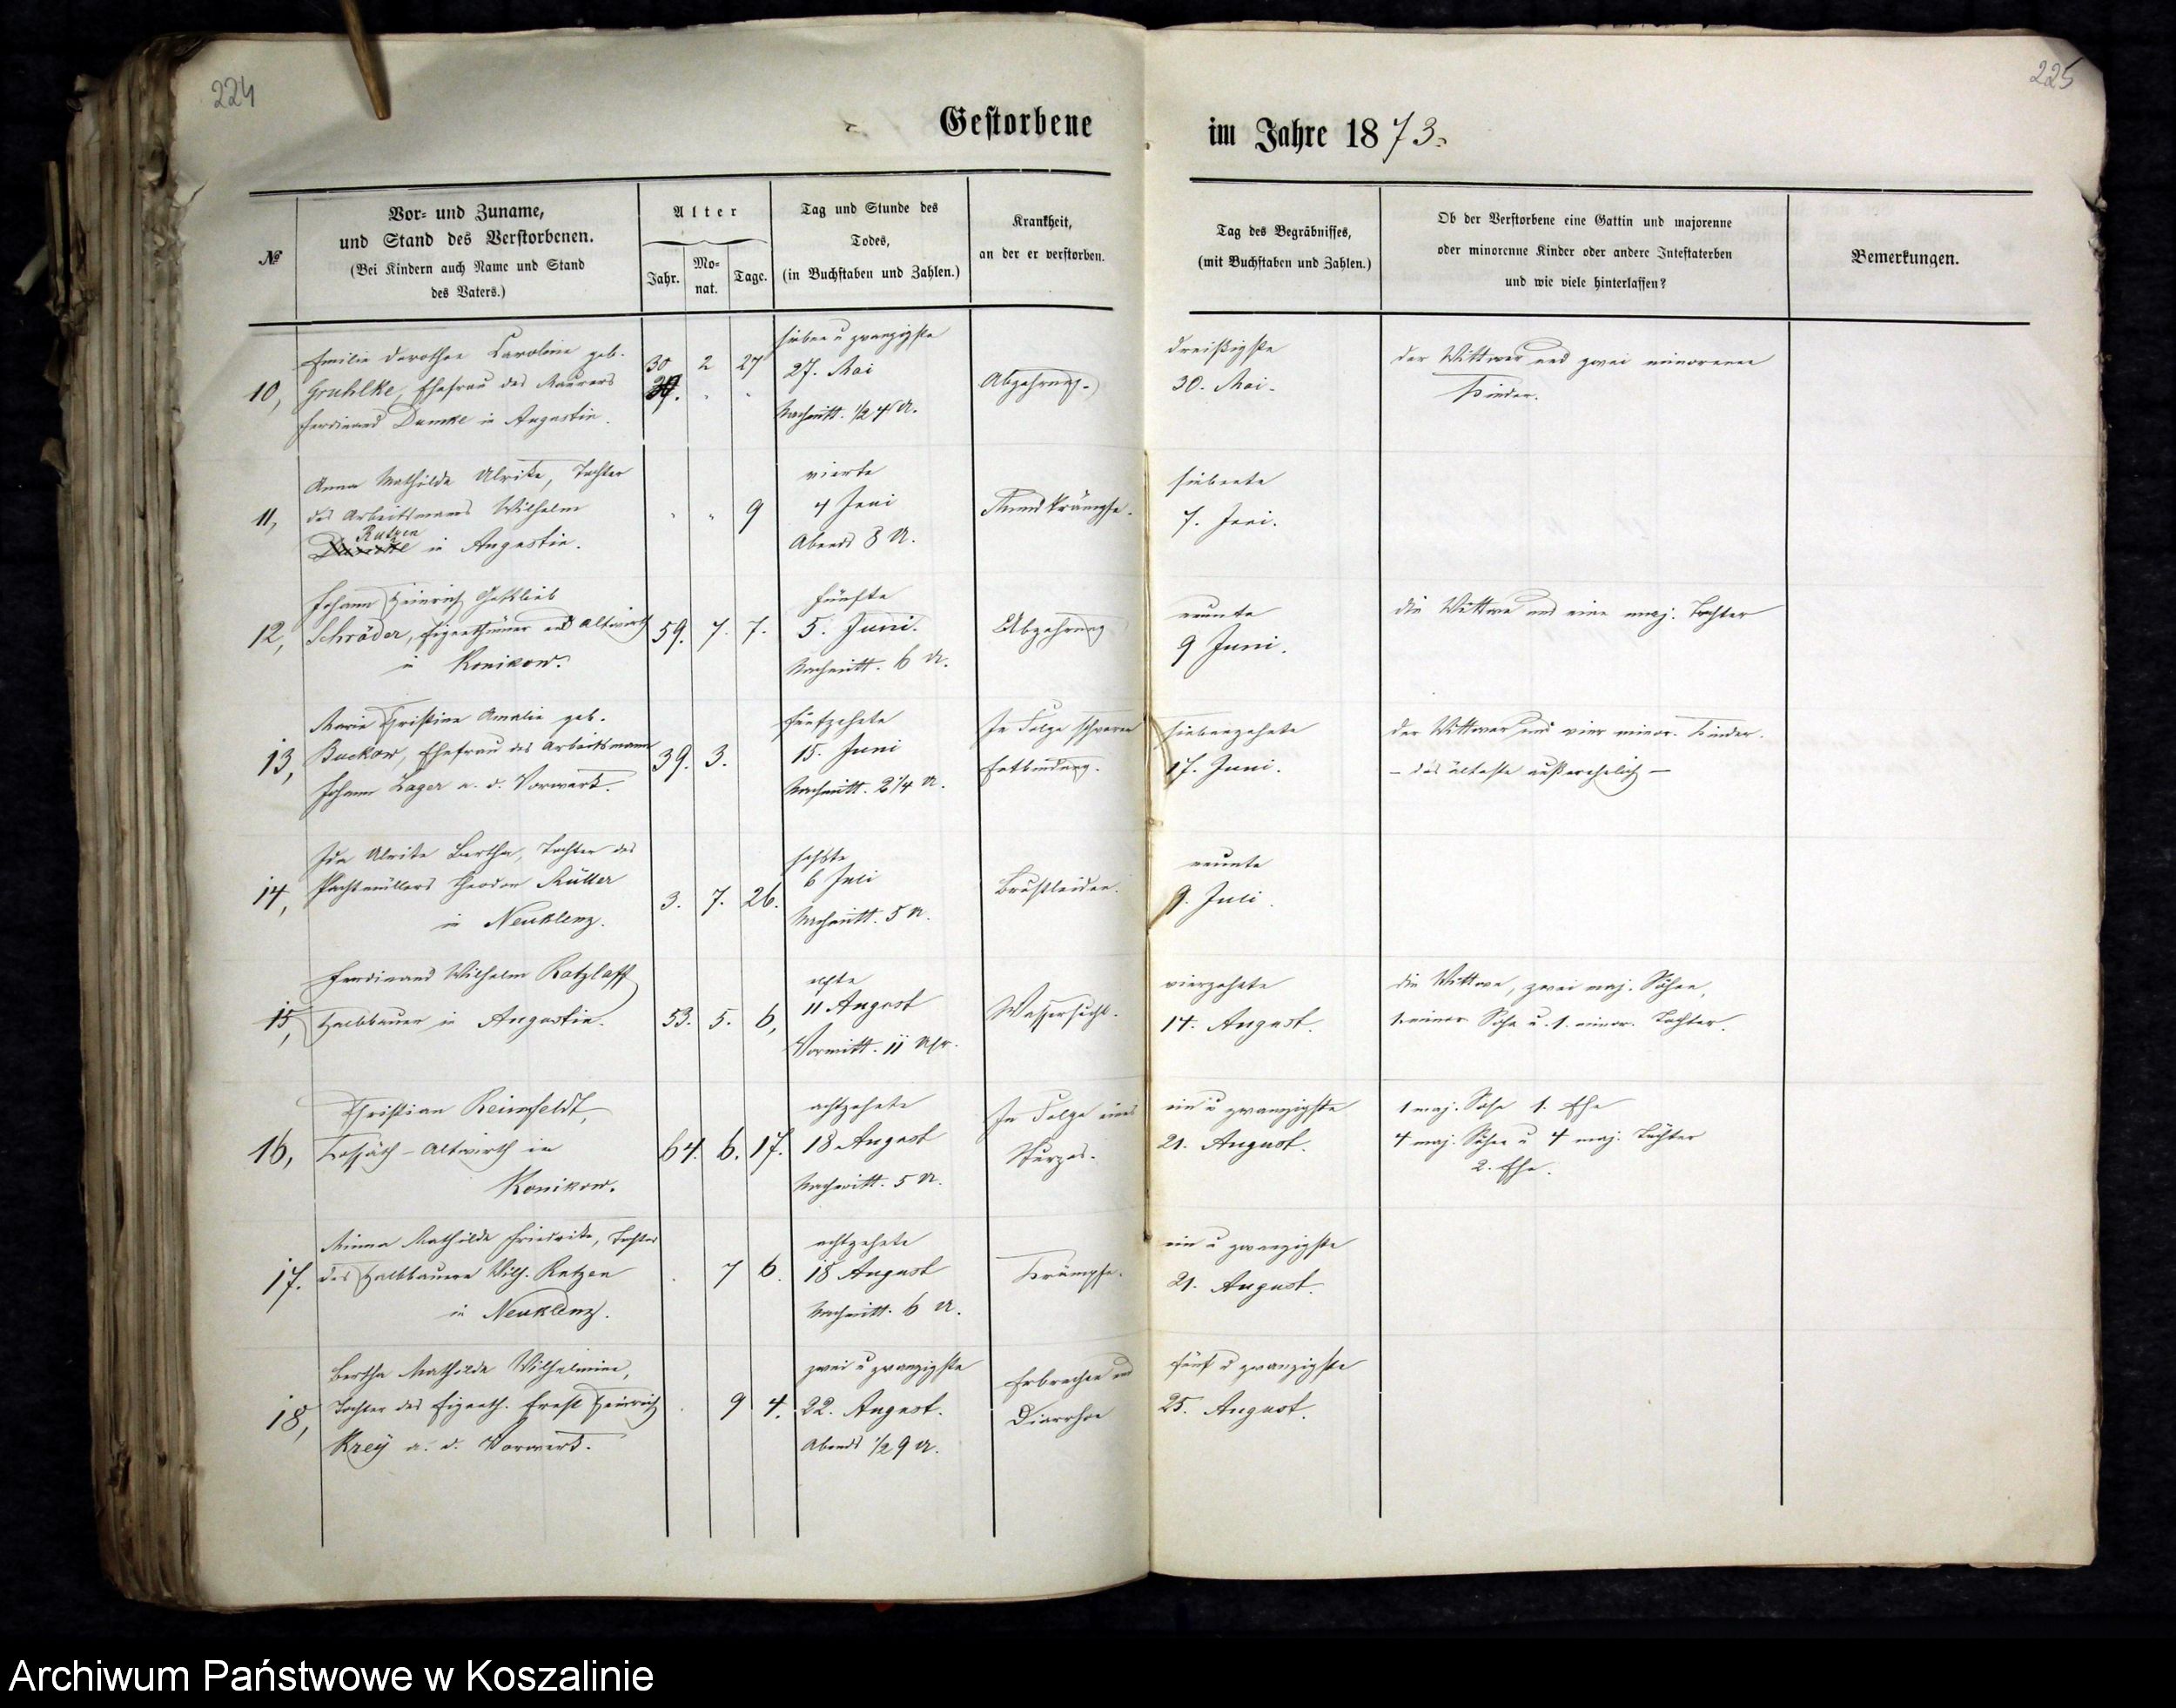 224
225
Gestorbene
im Jahre 1873.
№
Vor- und Zuname,
und Stand des Verstorbenen.
(Bei Kindern auch Name und Stand
des Vaters.)
Alter
Jahr.
Mo-
nat.
Tage.
Tag und Stunde des
Todes,
(in Buchstaben und Zahlen.)
Krankheit,
an der er verstorben.
Tag des Begräbnisses,
(mit Buchstaben und Zahlen.)
Ob der Verstorbene eine Gattin und majorenne
oder minorenne Kinder oder andere Intestaterben
und wie viele hinterlassen?
Bemerkungen.
10,
Emilie Dorothee Caroline geb.
Gruhlke, Ehefrau des Maurers
Ferdinand Damke in Augustin.
30 2 27
sieben u zwanzigste
27. Mai
Nachmitt. ½ 4 U.
Abzehrung.
dreißigste
30. Mai.
der Wittwer und zwei minorenne
Kinder.
11,
Anna Mathilde Ulrike, Tochter
des Arbeitsmanns Wilhelm
Rutzen
in Augustin.
9
vierte
4 Juni
Abends 8 U.
Mundkrämpfe.
siebente
7. Juni.
12,
Johann Heinrich Gottlieb
Schröder, Eigenthümer und Altwirth
in Konikow.
59. 7. 7.
fünfte
5. Juni.
Nachmitt. 6 U.
Abzehrung
neunte
9 Juni.
die Wittwe und eine maj. Tochter
13,
Marie Christine Amalie geb.
Buckow, Ehefrau des Arbeitsmann
Johann Lager a. d. Vorwerk.
39. 3.
fünfzehnte
15. Juni
Nachmitt. 2¼ U.
In Folge schwerer
Entbindung.
siebenzehnte
17. Juni.
der Wittwer und vier minor. Kinder.
– das älteste außerehelich –
14,
Ida Ulrike Bertha, Tochter des
Pachtmüllers Theodor Müller
in Neuklenz.
3. 7. 26.
sechste
6 Juli
Nachmitt. 5 U.
Brustleiden.
neunte
9. Juli.
15,
Ferdinand Wilhelm Ratzlaff
Halbbauer in Augustin.
53. 5. 6,
elfte
11 August
Vormitt. 11 Uhr.
Wassersucht.
vierzehnte
14. August.
die Wittwe, zwei maj. Söhne,
1. minor Sohn u. 1. minor. Tochter.
16,
Christian Reimfeldt,
Kossäth-Altwirth in
Konikow.
64. 6. 17.
achtzehnte
18 August
Nachmitt. 5 U.
In Folge eines
Sturzes.
ein u zwanzigste
21. August.
1 maj. Sohn 1. Ehe
4 maj. Söhne u 4 maj. Töchter
2. Ehe.
17.
Minna Mathilde Friedrike, Tochter
des Halbbauern Wilh. Rutzen
in Neuklenz.
7 6.
achtzehnte
18 August
Nachmitt. 6 U.
Krämpfe.
ein u zwanzigste
21. August.
18,
Bertha Mathilde Wilhelmine,
Tochter des Eigenth. Ernst Heinrich
Krey a. d. Vorwerk.
9 4.
zwei u zwanzigste
22. August.
Abends ½ 9 U.
Erbrechen und
Diarrhoe
fünf u zwanzigste
25. August.
Archiwum Państwowe w Koszalinie